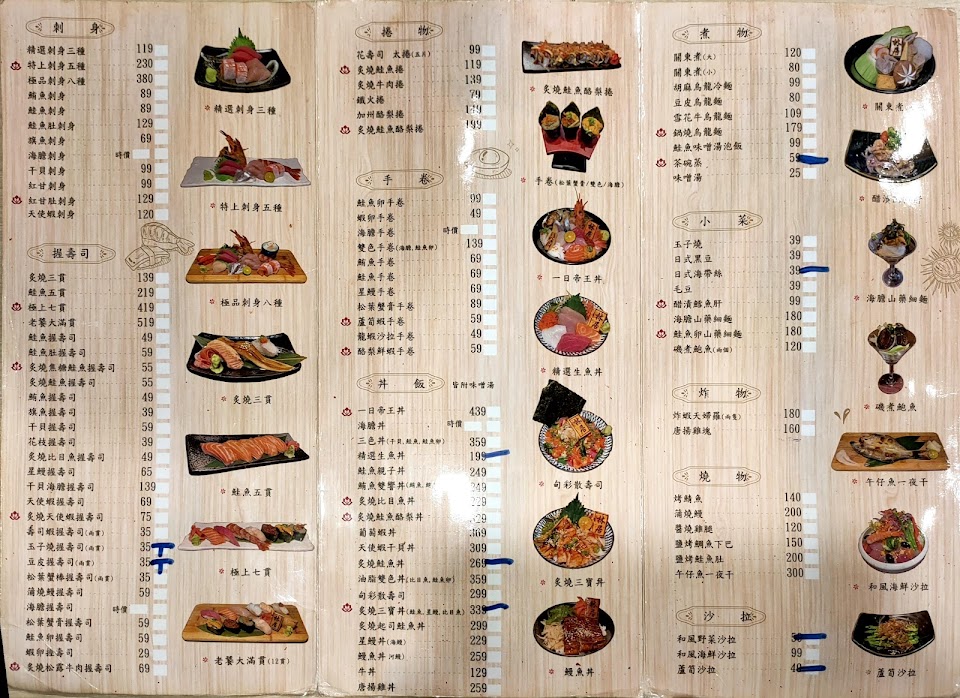 刺身
精選刺身三種 119
特上刺身五種 230
極品刺身八種 380
鮪魚刺身 89
鮭魚刺身 89
鮭魚肚刺身 129
旗魚刺身 69
海膽刺身 時價
干貝刺身 99
紅甘刺身 99
紅甘肚刺身 129
天使蝦刺身 120
握壽司
炙燒三貫 139
鮭魚五貫 219
極上七貫 419
老饕大滿貫 519
鮭魚握壽司 49
鮭魚肚握壽司 59
炙燒焦糖鮭魚握壽司 55
炙燒鮭魚握壽司 55
鮪魚握壽司 49
旗魚握壽司 39
干貝握壽司 59
花枝握壽司 39
炙燒比目魚握壽司 49
星鰻握壽司 65
干貝海膽握壽司 139
天使蝦握壽司 69
炙燒天使蝦握壽司 75
壽司蝦握壽司(兩貫) 35
玉子燒握壽司(兩貫) 35
豆皮握壽司(兩貫) 35
松葉蟹棒握壽司(兩貫) 35
蒲燒鰻握壽司 59
海膽握壽司 時價
松葉蟹膏握壽司 59
鮭魚卵握壽司 59
蝦卵握壽司 29
炙燒松露牛肉握壽司 69
精選刺身三種
特上刺身五種
極品刺身八種
炙燒三貫
鮭魚五貫
極上七貫
老饕大滿貫(12貫)
捲物
花壽司 太捲(五片) 99
炙燒鮭魚捲 119
炙燒牛肉捲 139
鐵火捲 79
加州酪梨捲
炙燒鮭魚酪梨捲 199
手卷
鮭魚卵手卷 99
蝦卵手卷 49
海膽手卷 時價
雙色手卷(海膽,鮭魚卵) 139
鮪魚手卷 59
鮭魚手卷 59
星鰻手卷 69
松葉蟹膏手卷 89
蘆筍蝦手卷 59
龍蝦沙拉手卷 59
酪梨鮮蝦手卷 59
丼飯 皆附味噌湯
一日帝王丼 439
海膽丼 時價
三色丼(干貝,鮭魚,鮭魚卵) 359
精選生魚丼 199
鮭魚親子丼 249
鮪魚雙饗丼
炙燒比目魚丼
炙燒鮭魚酪梨丼
葡萄蝦丼
天使蝦干貝丼
炙燒鮭魚丼 269
油脂雙色丼(比目魚,鮭魚卵) 359
旬彩散壽司 299
炙燒三寶丼(鮭魚,星鰻,比目魚) 339
炙燒起司鮭魚丼 299
星鰻丼(海鰻) 299
鰻魚丼(河鰻) 259
牛丼 129
唐揚雞丼 259
炙燒鮭魚酪梨捲
手卷(松葉蟹膏/雙色/海膽)
一日帝王丼
精選生魚丼
旬彩散壽司
炙燒三寶丼
鰻魚丼
煮物
關東煮(大) 120
關東煮(小) 80
胡麻烏龍冷麵 99
豆皮烏龍麵 80
雪花牛烏龍麵 109
鍋燒烏龍麵 179
鮭魚味噌湯泡飯 99
茶碗蒸 59
味噌湯 25
小菜
玉子燒 39
日式黑豆 39
日式海帶絲 39
毛豆 39
醋漬鱈魚肝 99
海膽山藥細麵 180
鮭魚卵山藥細麵 180
磯煮鮑魚(兩個) 120
炸物
炸蝦天婦羅(兩隻) 180
唐揚雞塊 160
燒物
烤鯖魚 140
蒲燒鰻 200
醬燒雞腿 120
鹽烤鯛魚下巴 150
鹽烤鮭魚肚 200
午仔魚一夜干 300
沙拉
和風野菜沙拉
和風海鮮沙拉 99
蘆筍沙拉
關東煮
海膽山藥細麵
磯煮鮑魚
午仔魚一夜干
和風海鮮沙拉
蘆筍沙拉